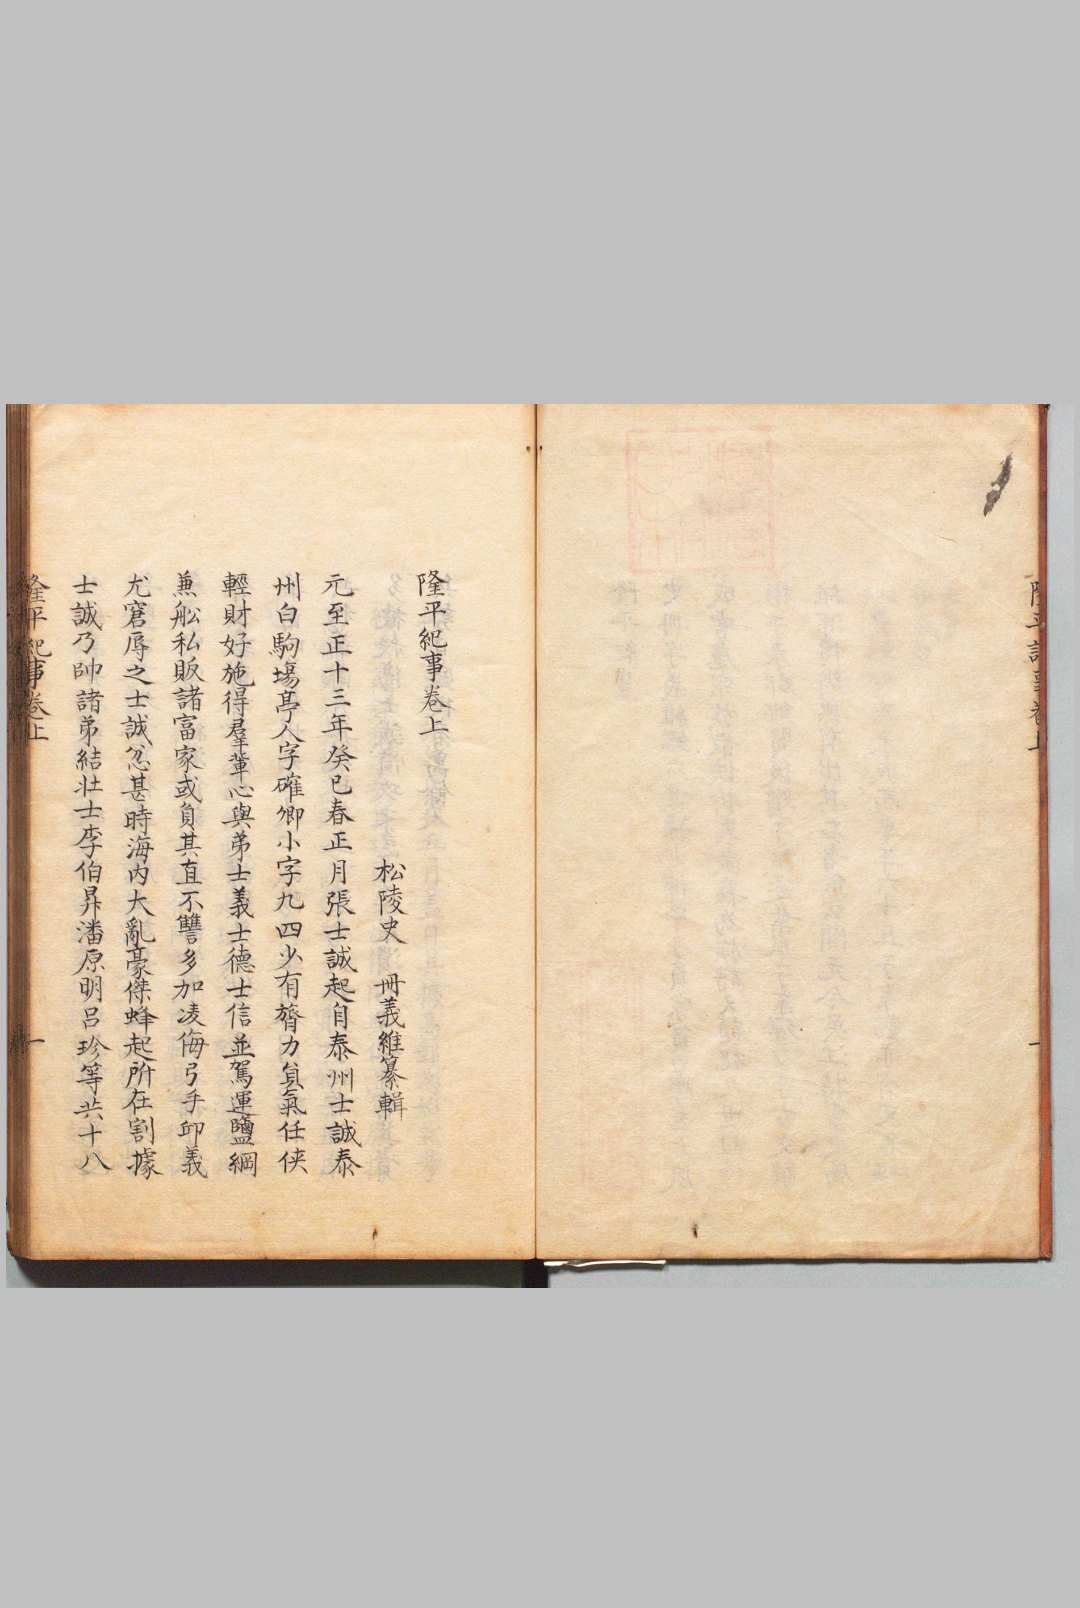 隆平紀事卷上
松陵史　冊義維纂輯
元至正十三年癸巳春正月張士誠起自泰州士誠泰
州白駒塲亭人字確卿小字九四少有膂力負氣任俠
輕財好施得羣輩心與弟士義士德士信並駕運鹽綱
兼舩私販諸富家或負其直不讐多加凌侮弓手邱義
尤窘辱之士誠忿甚時海内大亂豪傑蜂起所在割據
士誠乃帥諸弟結壯士李伯昇潘原明呂珍等共十八
隆平紀事卷上
一